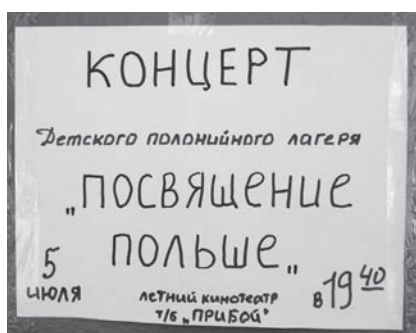 КОНЦЕРТ
Детского полонийного лагеря
„ПОСВЯЩЕНИЕ
ПОЛЬШЕ„
5 июля
летний кинотеатр
т/б „ПРИБОЙ"
в 19 40